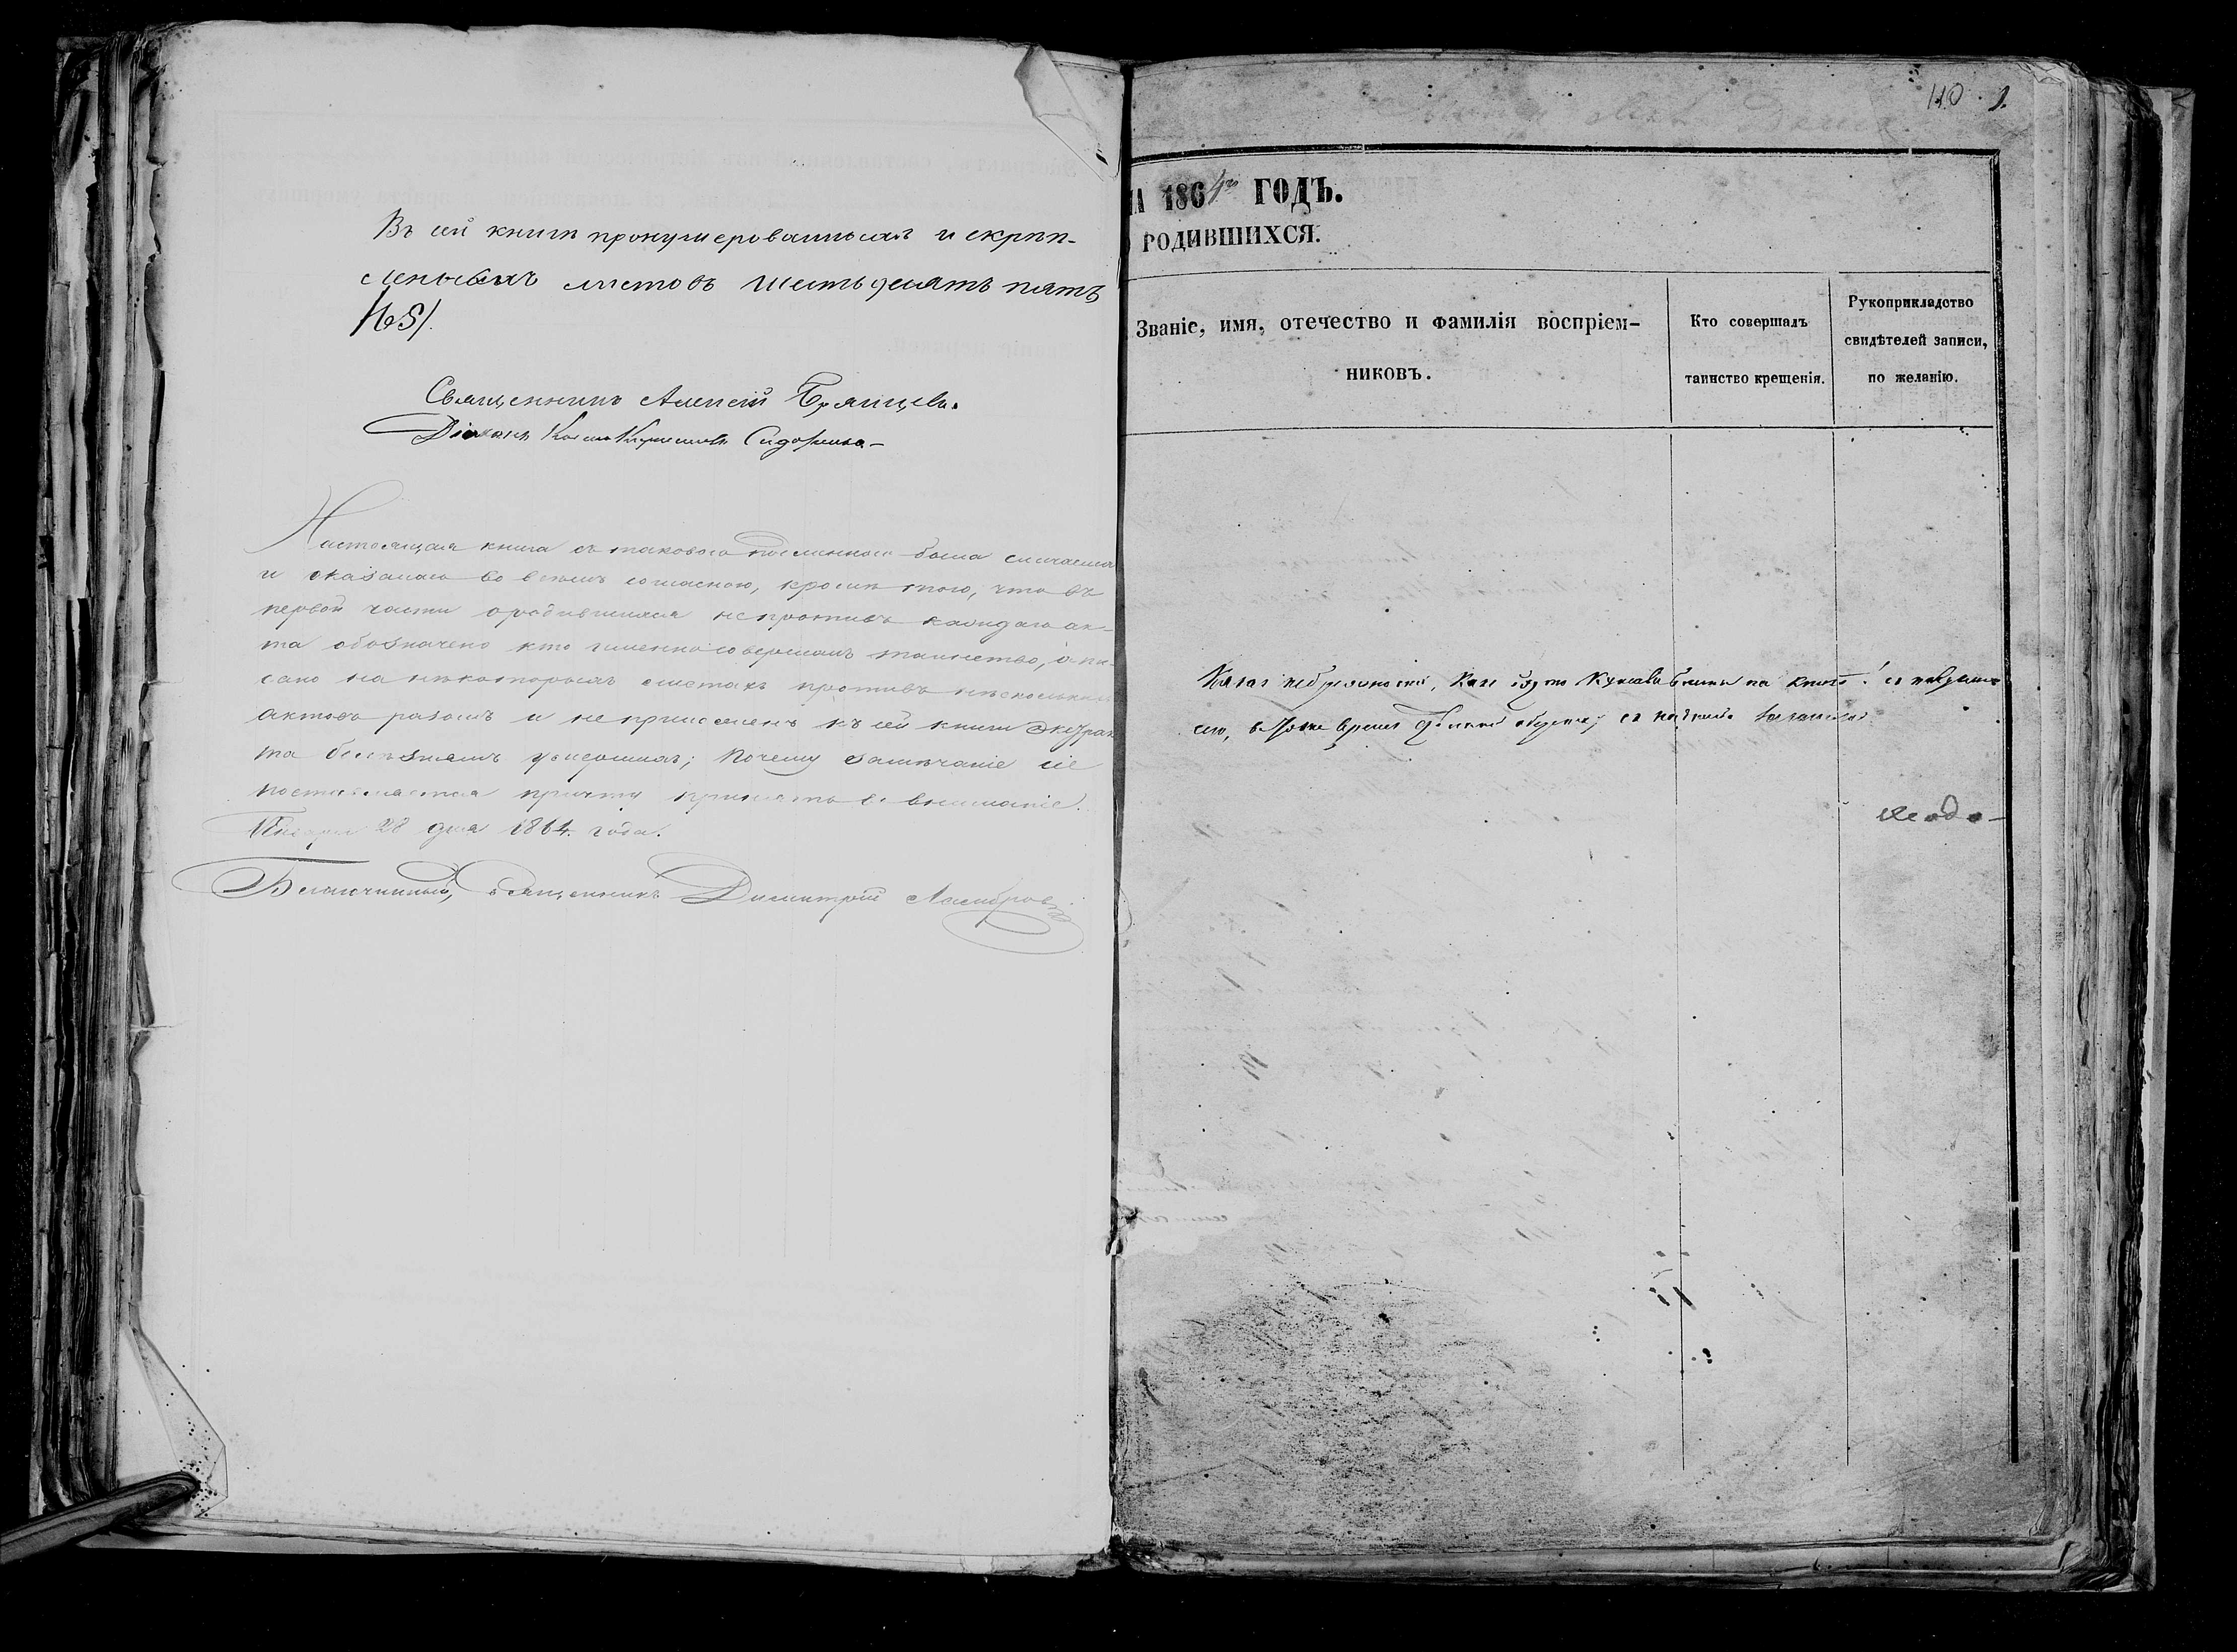 Въ сей книги пронумерованныхъ и скрѣп-
леныхъ листовъ шестьдесятъ пять
/65/.
Священникъ Алексій Брянцевъ.
Діаконъ Сидоренко
Настоящая книга съ таковою подлинною была сличаема
и оказалась во всемъ согласною, кромѣ того, что въ
первой части о родившихся не противъ каждаго ак-
та обозначено кто именно совершалъ таинство, а пи-
сано на нѣкоторыхъ листахъ противъ нѣсколькихъ
актовъ разомъ и не приложенъ къ сей книги Экстрак
та болѣзнямъ умершихъ; Почему замѣчаніе сіе
поставляется причту принять во вниманіе.
Января 28 дня 1864 года.
Благочинный, священникъ Димитрій
110 1.
НА 1864го ГОДЪ.
О РОДИВШИХСЯ.
Званіе, имя, отечество и фамилія воспріем-
никовъ.
Кто совершалъ
таинство крещенія.
Рукоприкладство
свидѣтелей записи,
по желанію.